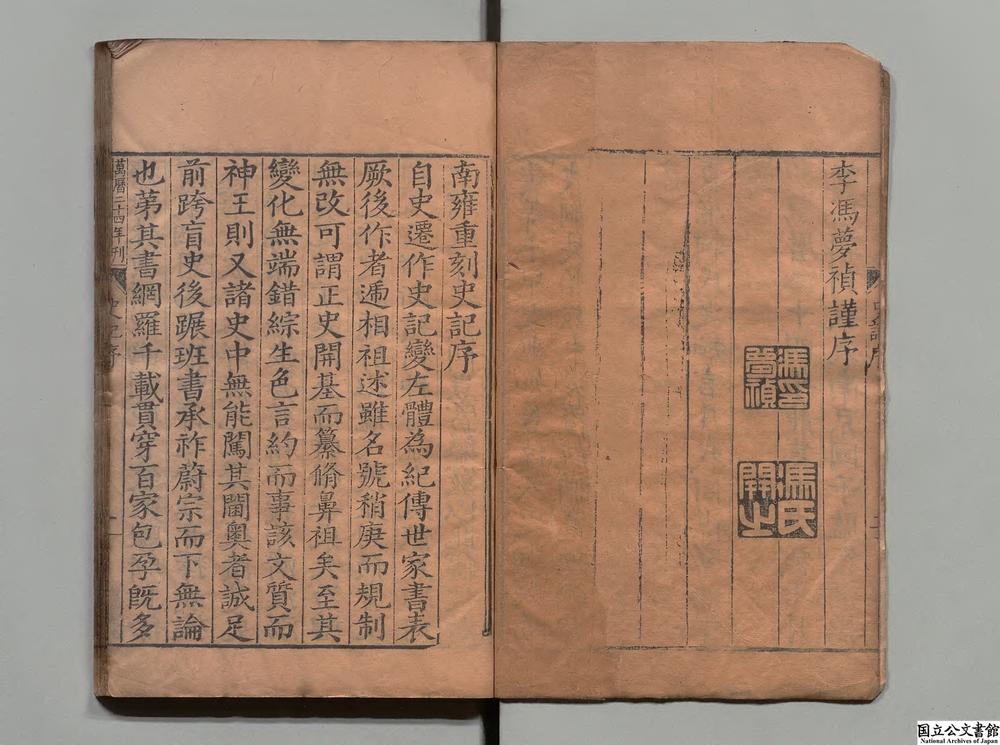 李馮夢禎謹序
馮印夢禎
馮氏開之
南雍重刻史記序
自史遷作史記變左體為紀傳世家書表
厥後作者遞相祖述雖名號稍庚而規制
無改可謂正史開基而纂脩鼻祖矣至其
變化無端錯綜生色言約而事該文質而
神王則又諸史中無能闖其閫奧者誠足
前跨盲史後蹍班書承祚蔚宗而下無論
也苐其書網羅千載貫穿百家包孕旣多
萬曆二十四年刊
史記序
一
国立公文書館
National Archives of Japan